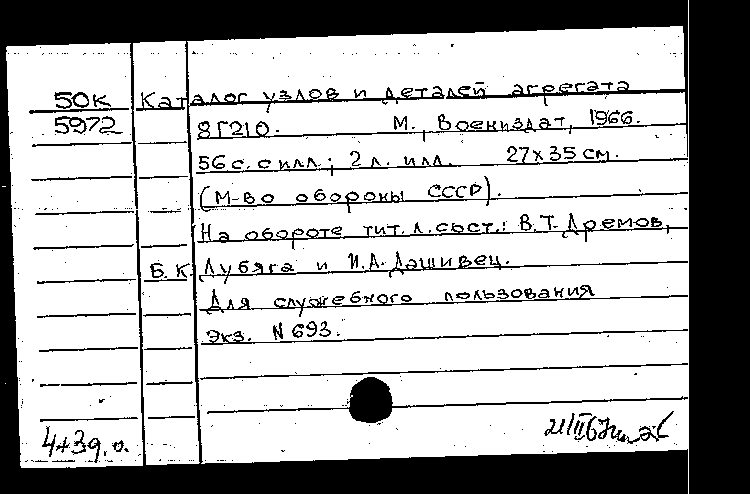 50К Каталог узлов и деталей агрегата
5972 8Г210. М., Воениздат, 1966.
56 с. с илл.; 2 л. илл. 27х35 см.
(М-во обороны СССР).
На обороте тит. л. сост.: В.Т. Дремов,
Б.К. Лубяга и И.А. Дашивец.
Для служебного пользования
Экз. N 693.
4+3д.о.